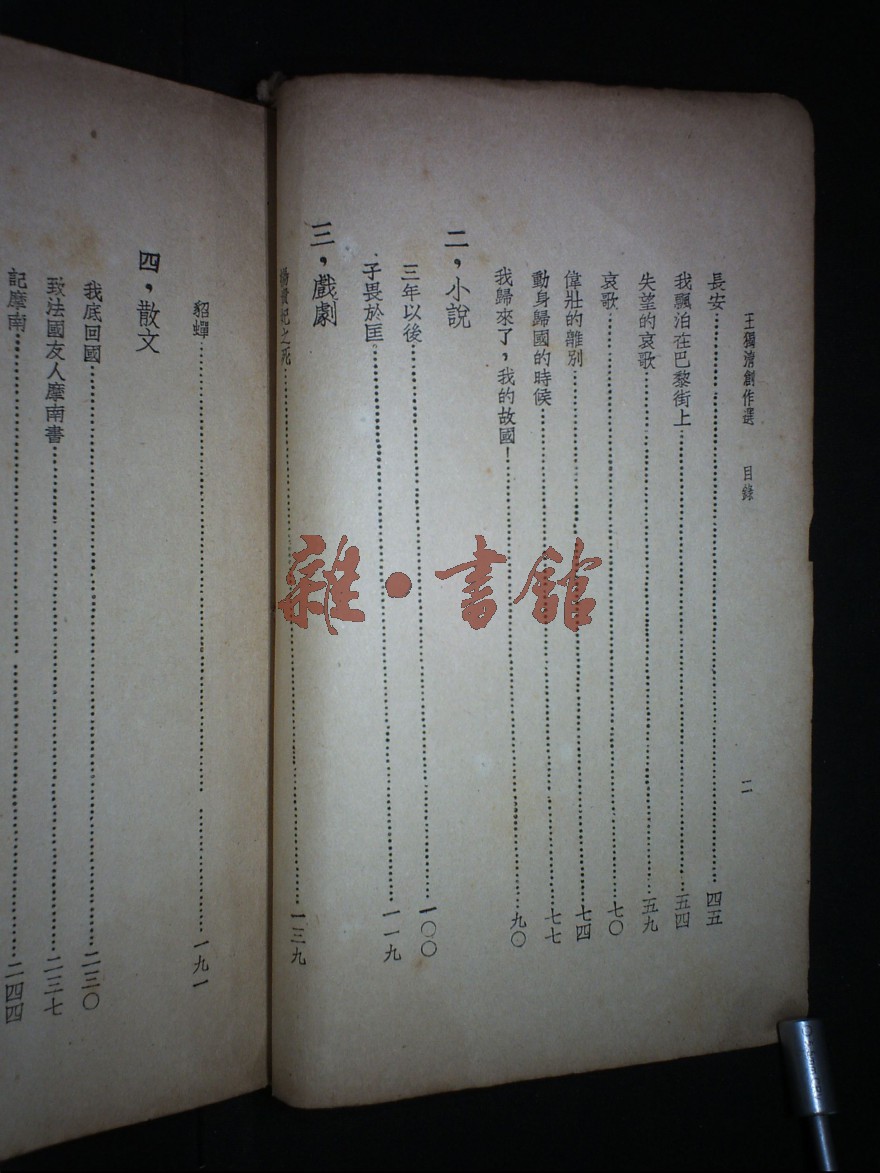 王獨清創作選 目錄 二
長安 四五
我飄泊在巴黎街上 五四
失望的哀歌 五九
哀歌 七〇
偉壯的離別 七四
動身歸國的時候 七七
我歸來了，我的故國！ 九〇
二，小說
三年以後 一〇〇
子畏於匡 一一九
三，戲劇
楊貴妃之死 一三九
貂蟬 一九一
四，散文
我底回國 二三〇
致法國友人摩南書 二三七
記摩南 二四四
雜·書館